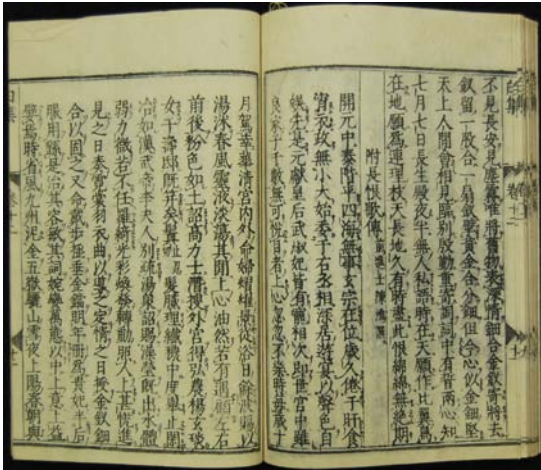 白集 卷十二
不見長安見塵霧唯將舊物表深情鈿合金釵寄將去
釵留一股合一扇釵擘黃金合分鈿但令心似金鈿堅
天上人間會相見臨別殷勤重寄詞詞中有誓兩心知
七月七日長生殿夜半無人私語時在天願作比翼鳥
在地願為連理枝天長地久有時盡此恨綿綿無絕期
附長恨歌傳 前進士陳鴻撰
開元中泰階平四海無事玄宗在位歲久倦于旰食
宵衣政無小大始委于右丞相深居遊宴以聲色自
娛先是元獻皇后武淑妃皆有寵相次即世宮中雖
良家子千數無可悅目者上心忽忽不樂時每歲十
月駕幸華清宮內外命婦熠燿景從浴日餘波賜以
湯沐春風靈液淡蕩其間上心油然若有遇顧左右
前後粉色如土詔高力士潛搜外宮得弘農楊玄琰
女于壽邸既笄矣鬢髮膩理纖穠中度舉止閑
冶如漢武帝李夫人別疏湯泉詔賜澡瑩既出水體
弱力微若不任羅綺光彩煥發轉動照人上甚悅進
見之日奏霓裳羽衣曲以導之定情之夕授金釵鈿
合以固之又命戴步搖垂金璫明年冊為貴妃半后
服用繇是冶其容敏其詞婉孌萬態以中上意上益
嬖焉時省風九州泥金五嶽驪山雪夜上陽春朝與